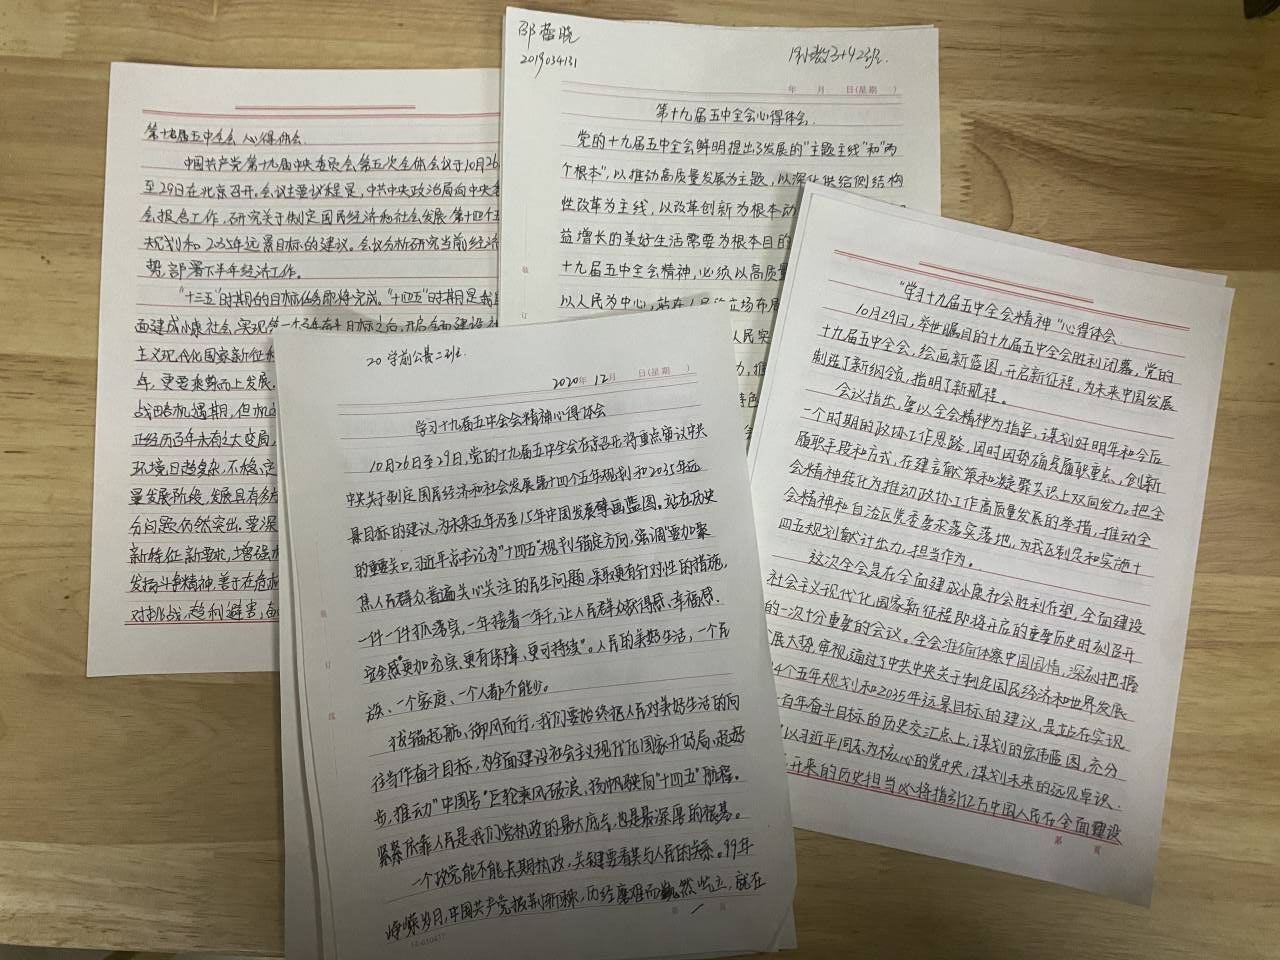 第十九届五中全会 心得体会.
中国共产党第十九届中央委员会第五次全体会议于10月26
至29日在北京召开.会议主要议程是,中共中央政治局向中央委
会报告工作,研究关于制定国民经济和社会发展第十四个五
规划和2035年远景目标的建议.会议分析研究当前经济
势,部署下半年经济工作。
"十三五"时期的目标任务即将完成."十四五"时期是我
面建成小康社会、实现第一个百年奋斗目标之后,开启全面建设
主义现代化国家新征程
年,更要乘势而上发展,
战略机遇期,但机
正经历百年未有之大变局,
环境日趋复杂,不稳定
量发展阶段,发展具有多
分问题仍然突出,要深
新特征新要求,增强
发扬斗争精神,善于在危机
对挑战,趋利避害,
邵蕾晓
2019034131
年 月 日(星期 )
第十九届五中全会心得体会.
党的十九届五中全会鲜明提出了发展的"主题主线"和"两
个根本",以推动高质量发展为主题,以深化供给侧结构
性改革为主线,以改革创新为根本动
益增长的美好生活需要为根本目的
十九届五中全会精神,必须以高质量
以人民为中心,站在人民的立场布局
人民实
力,推
特色
20学前公费二班
2020年12月 日(星期 )
学习十九届五中全会精神心得体会
10月26日至29日,党的十九届五中全会在京召开将重点审议中共
中央关于制定国民经济和社会发展第十四个五年规划和2035年远
景目标的建议,为未来五年乃至15年中国发展擘画蓝图。站在历史
的重要关口,习近平总书记为"十四五"规划锚定方向,强调"要加聚
焦人民群众普遍关心关注的民生问题,采取更有针对性的措施,
一件一件抓落实,一年接着一年干,让人民群众获得感、幸福感、
安全感更加充实、更有保障、更可持续"。人民的美好生活,一个民
族、一个家庭、一个人都不能少。
找锚起航,御风而行,我们要始终把人民对美好生活的向
往当作奋斗目标,为全面建设社会主义现代化国家开好局、起好
步,推动"中国号"巨轮乘风破浪,扬帆驶向"十四五"航程。
紧紧依靠人民是我们党执政的最大底气,也是最深厚的根基。
一个政党能不能长期执政,关键要看其与人民的关系。99年
峥嵘岁月,中国共产党披荆斩棘,历经磨难而巍然屹立,就在
第 1 页
"学习十九届五中全会精神"心得体会.
10月29日,举世瞩目的十九届五中全会胜利闭幕,党的
十九届五中全会,绘画新蓝图,开启新征程,为未来中国发展
制造了新纲领,指明了新航程。
会议指出,要以全会精神为指导,谋划好明年和今后
一个时期的政协工作思路,因时因势确定履职重点、创新
履职手段和方式,在建言献策和凝聚共识上双向发力。把全
会精神转化为推动政协工作高质量发展的举措,推动全
会精神和自治区党委要求落实落地,为我区制定和实施十
四五规划献计出力,担当作为。
这次全会是在全面建成小康社会胜利在望、全面建设
社会主义现代化国家新征程即将开启的重要历史时刻召开
的一次十分重要的会议。全会准确体察中国国情,深刻把握
发展大势,审视,通过了中共中央关于制定国民经济和世界发展
14个五年规划和2035年远景目标的建议,是站在实现
百年奋斗目标的历史交汇点上,谋划的宏伟蓝图,充分
以习近平同志为核心的党中央,谋划未来的远见卓识.
开来的历史担当必将指引亿万中国人民在全面建设
第 页